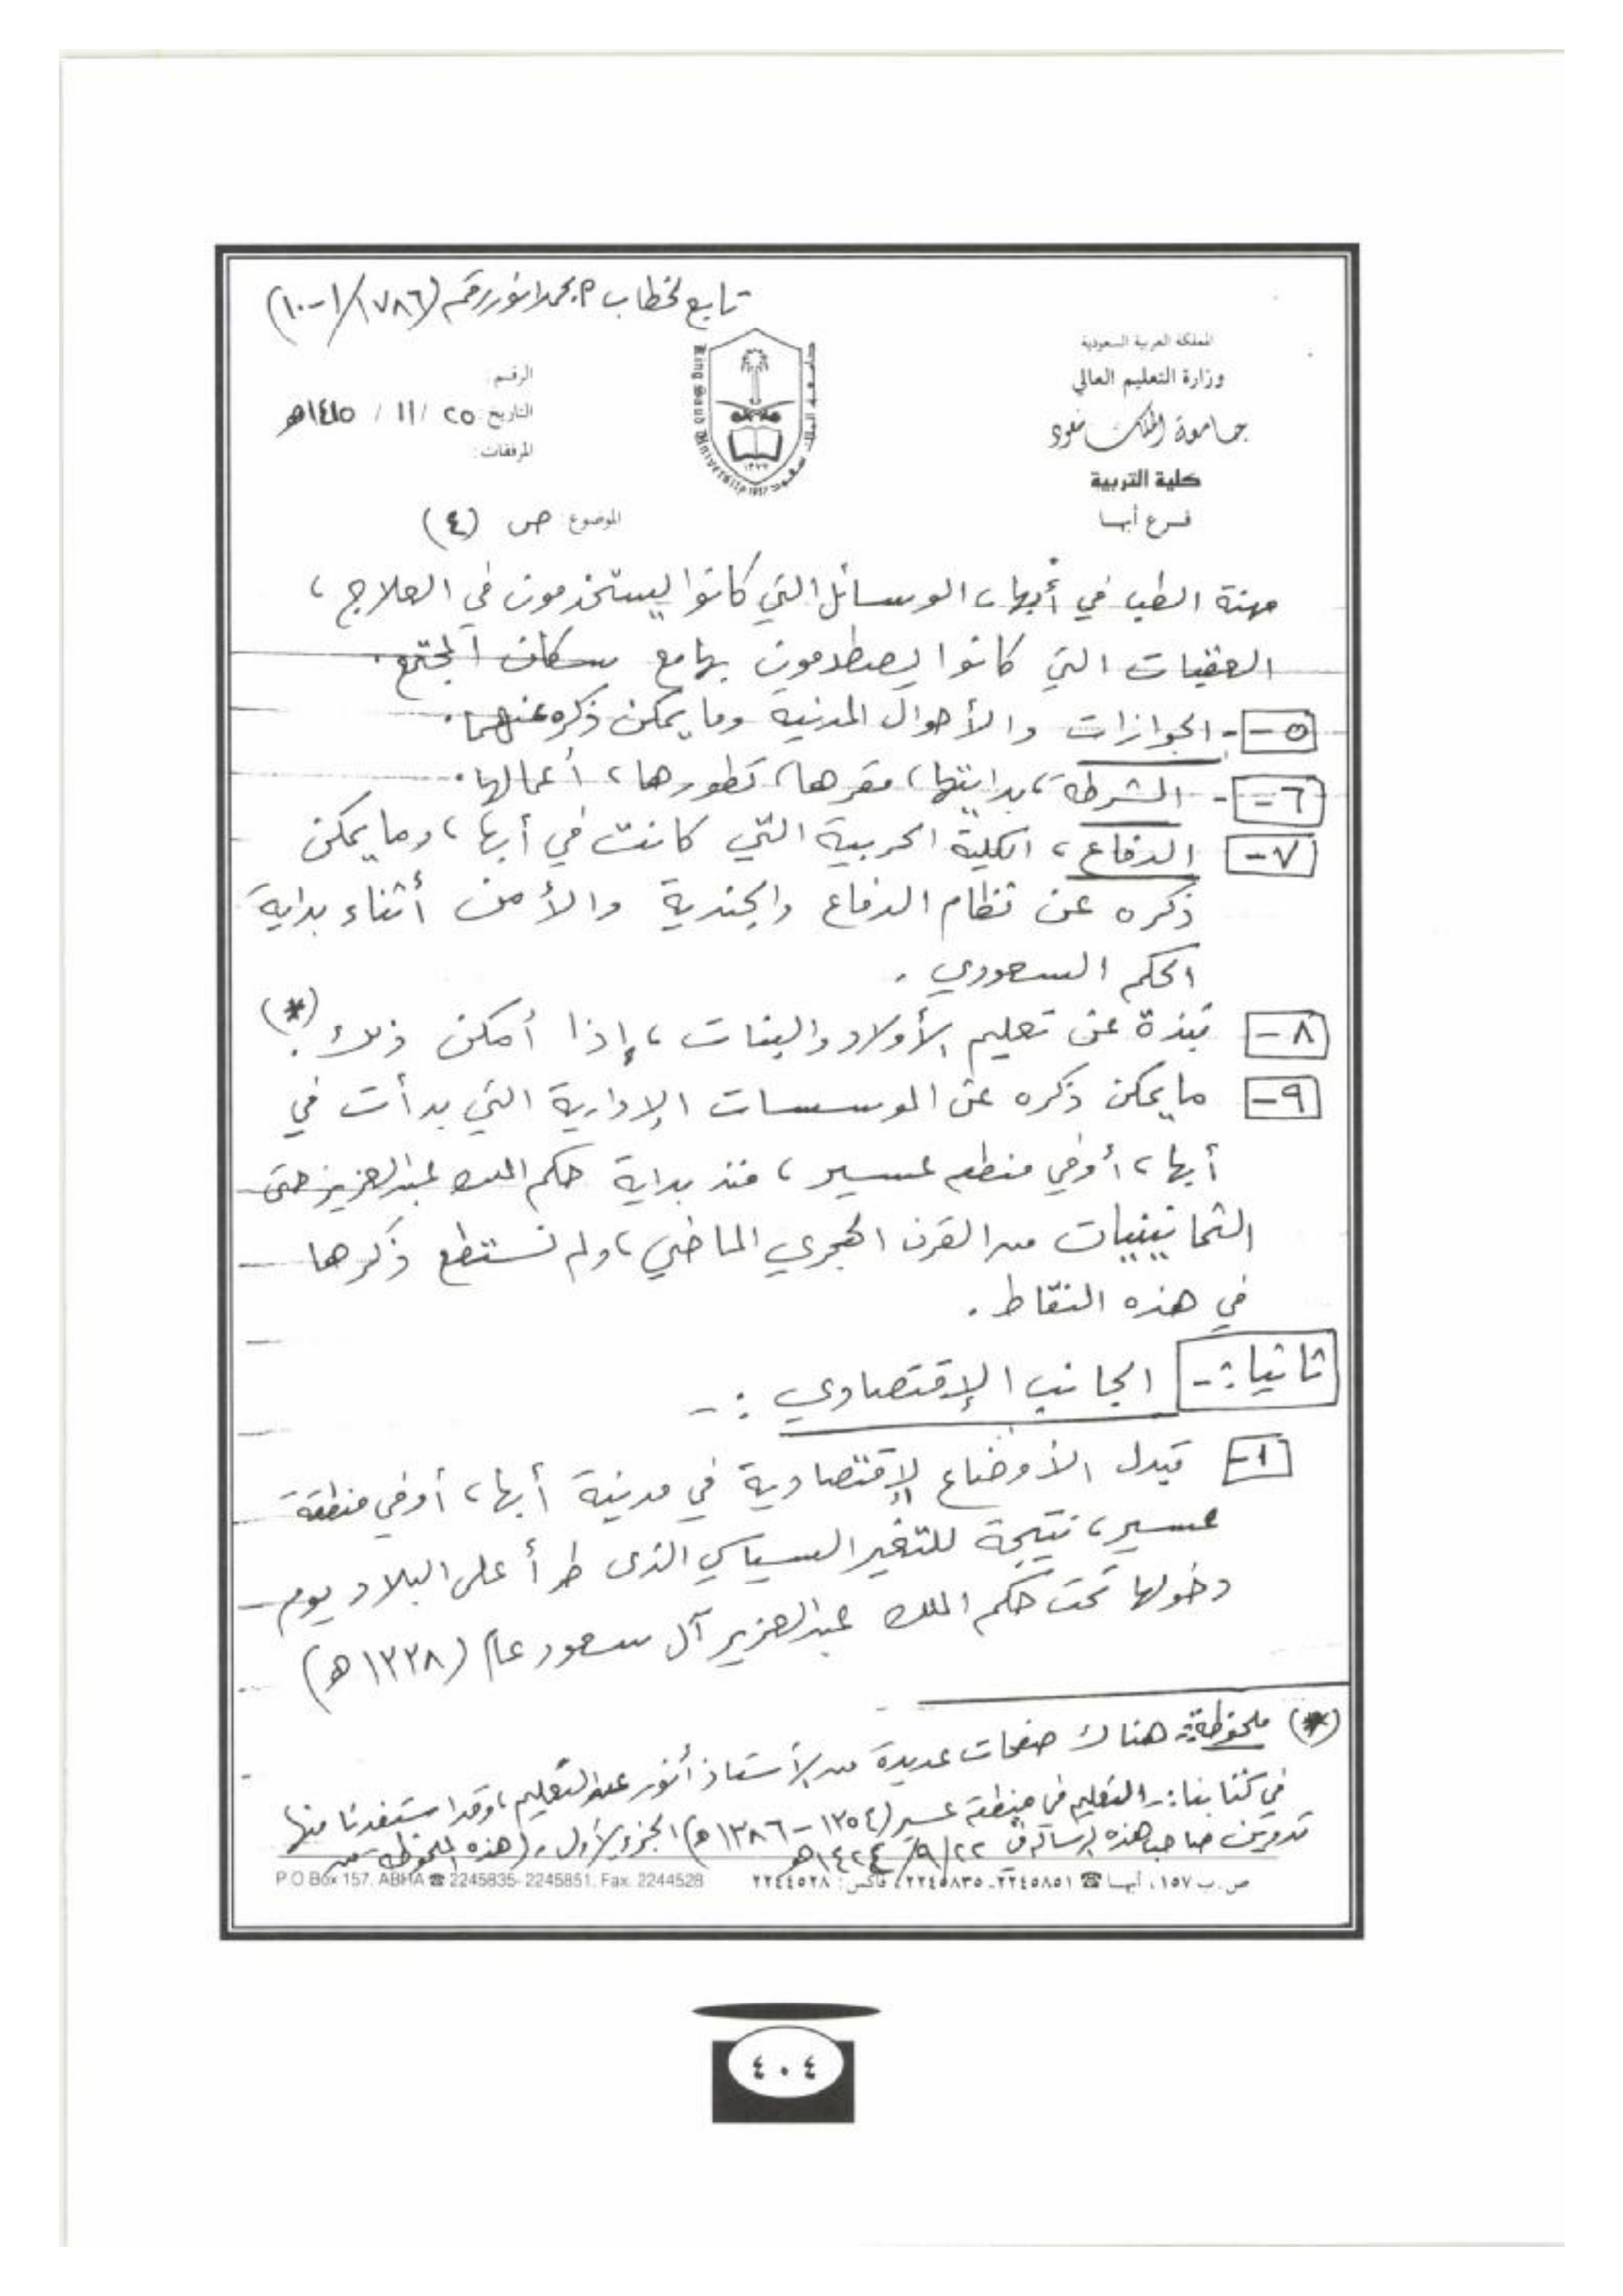 تابع لخطاب م. محمد أنور رقم (١٧٨٦/١-١٠)
المملكة العربية السعودية
وزارة التعليم العالي
جامعة الملك سعود
كلية التربية
فرع أبها
جامعة الملك سعود ١٣٧٧
King Saud University 1957
الرقم:
التاريخ: ٢٥ / ١١ / ١٤١٥هـ
المرفقات:
الموضوع: ص (٤)
مهنة الطب في أبها، الوسائل التي كانوا يستخدمون في العلاج،
العقبات التي كانوا يصطدمون بها مع سكان المجتمع.
٥- الجوازات والأحوال المدنية وما يمكن ذكره عنهما.
٦- الشرطة، بدايتها، مقرها، تطورها، أعمالها.
٧- الدفاع، الكلية الحربية التي كانت في أبها، وما يمكن
ذكره عن نظام الدفاع والجندية والأمن أثناء بداية
الحكم السعودي.
٨- نبذة عن تعليم الأولاد والبنات، إذا أمكن ذلك. (*)
٩- ما يمكن ذكره عن الموسسات الإدارية التي بدأت في
أبها، أو في منطقه عسير، منذ بداية حكم الملك عبدالعزيز حتى
الثمانينيات من القرن الهجري الماضي، ولم نستطع ذكرها
في هذه النقاط.
ثانيا:- الجانب الإقتصادي :-
١- تبدل الأوضاع الإقتصادية في مدينة أبها، أو في منطقة
عسير، نتيجة للتغير السياسي الذى طرأ على البلاد يوم
دخولها تحت حكم الملك عبدالعزيز آل سعود عام (١٣٣٨هـ)
(*) ملحوظة:- هناك صفحات عديدة من الأستاذ أنور عن التعليم، وقد استفدنا منها
في كتابنا:- التعليم في منطقة عسير (١٣٥٤-١٣٨٦هـ) الجزء الأول. (هذه الملحوظة من
تدوين صاحب هذه الرسالة في ٢٢/٩/١٤٢٤هـ
ص.ب ١٥٧، أبها ☎ ٢٢٤٥٨٥١-٢٢٤٥٨٣٥، فاكس: ٢٢٤٤٥٢٨
P.O Box 157, ABHA ☎ 2245835- 2245851, Fax. 2244528
٤٠٤